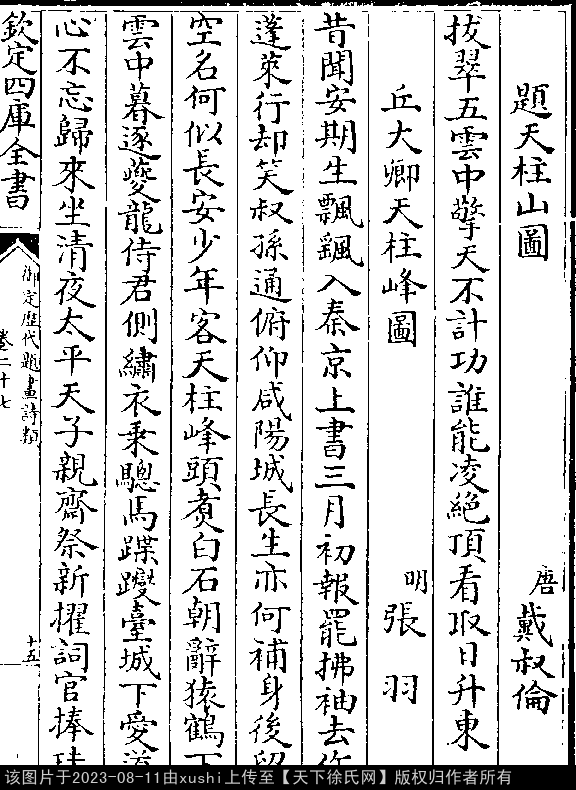 題天柱山圖 唐 戴叔倫
拔翠五雲中擎天不計功誰能凌絶頂看取日升東
丘大卿天柱峰圖 明 張羽
昔聞安期生飄飄入秦京上書三月初報罷拂袖去作
蓬萊行却笑叔孫通俯仰咸陽城長生亦何補身後留
空名何似長安少年客天柱峰頭煮白石朝辭猿鶴下
雲中暮逐夔龍侍君側繡衣乘驄馬蹀躞臺城下愛道
心不忘歸來坐清夜太平天子親齋祭新擢詞官捧
欽定四庫全書
御定歴代題畫詩類
卷二十七
十五
该图片于2023-08-11由xushi上传至【天下徐氏网】版权归作者所有